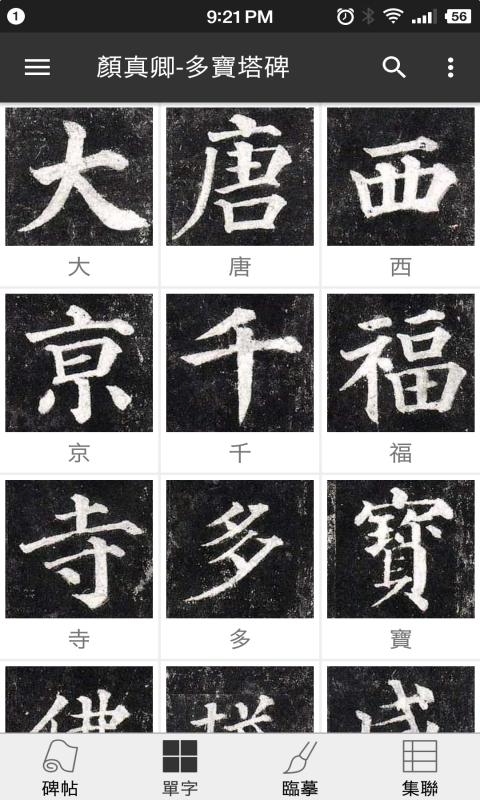 1 9:21 PM 56
顏真卿-多寶塔碑
大 唐 西
大 唐 西
京 千 福
京 千 福
寺 多 寶
寺 多 寶
碑帖 單字 臨摹 集聯